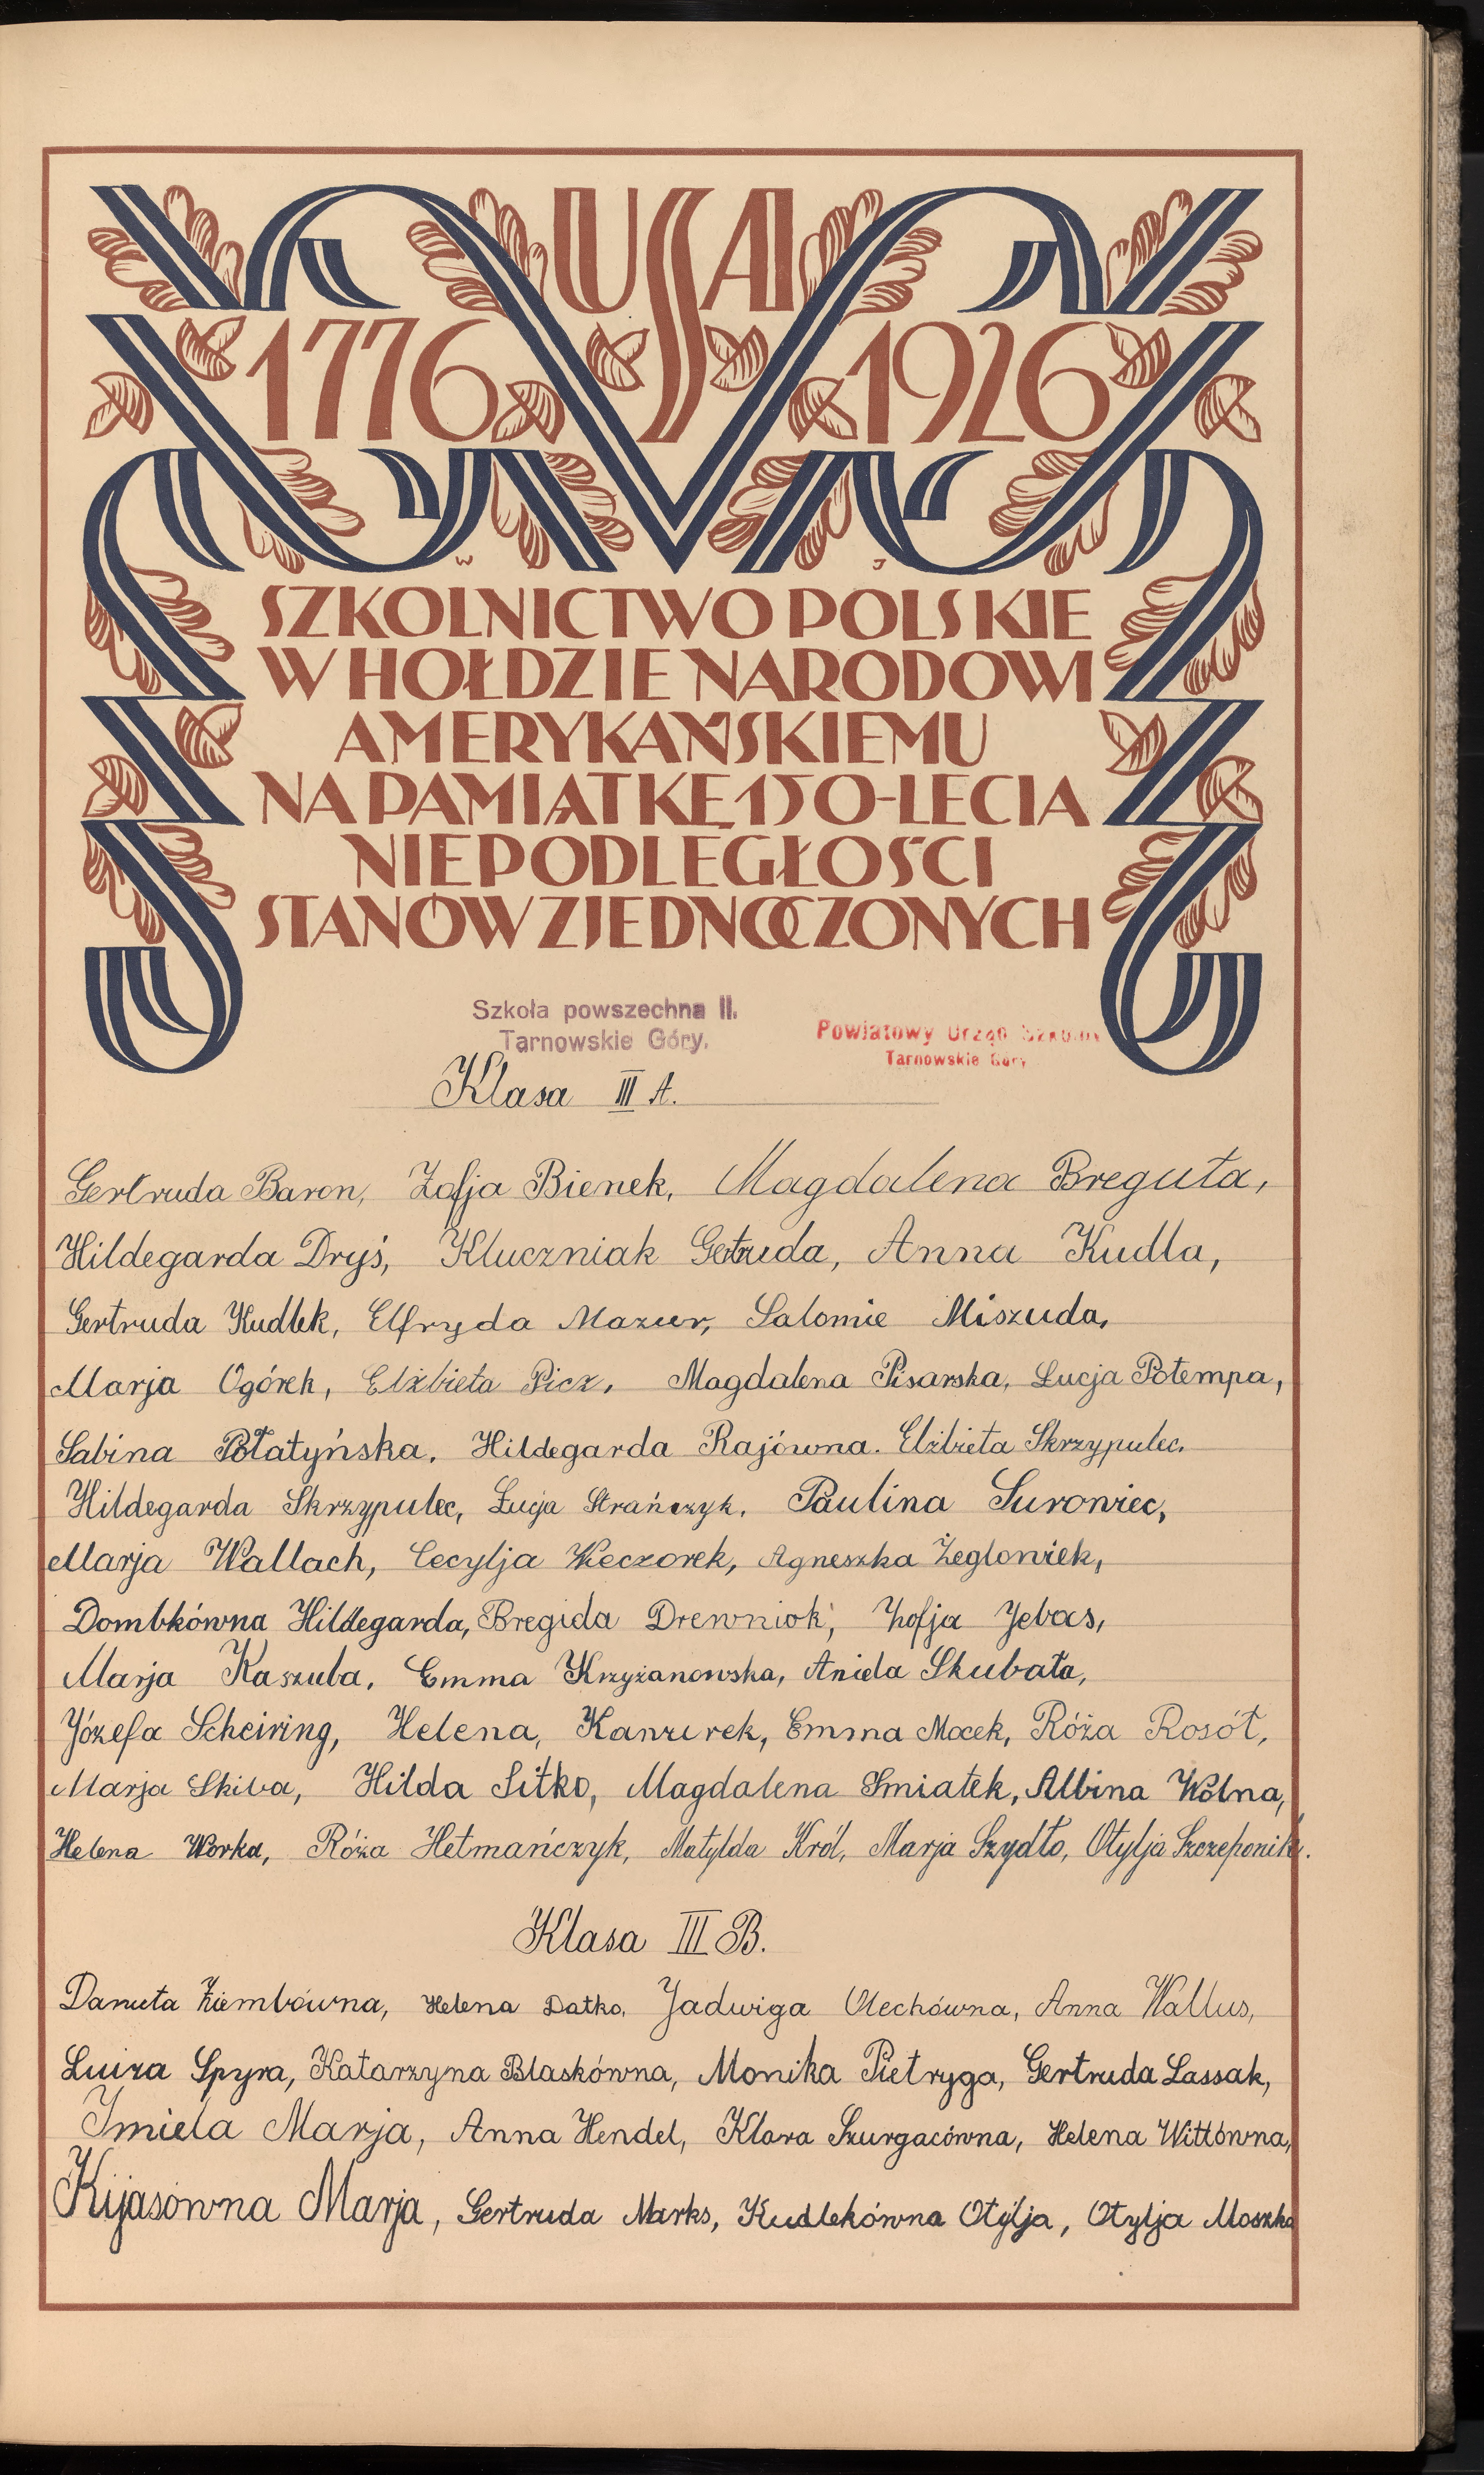 USA
1776 1926
W J
SZKOLNICTWO POLSKIE
W HOŁDZIE NARODOWI
AMERYKAŃSKIEMU
NA PAMIĄTKĘ 150-LECIA
NIEPODLEGŁOŚCI
STANÓW ZJEDNOCZONYCH
Szkoła powszechna II.
Tarnowskie Góry.
Powiatowy Urząd Szkolny
Tarnowskie Góry
Klasa III A.
Gertruda Baron, Zofja Bienek, Magdalena Breguła,
Hildegarda Dryś, Kluczniak Gertruda, Anna Kudla,
Gertruda Kudlek, Elfryda Mazur, Salomie Miszuda,
Marja Ogórek, Elżbieta Picz, Magdalena Pisarska, Łucja Potempa,
Sabina Połatyńska, Hildegarda Rajówna. Elżbieta Skrzypulec.
Hildegarda Skrzypulec, Łucja Strańczyk, Paulina Suroniec,
Marja Wallach, Cecylja Wieczorek, Agneszka Żegloniek,
Dombkówna Hildegarda, Bregida Drewniok, Zofja Jebas,
Marja Kaszuba, Emma Krzyżanowska, Aniela Skubała,
Józefa Scheiring, Helena, Kanzurek, Emma Mocek, Róża Rosół,
Marja Skiba, Hilda Sitko, Magdalena Smiatek, Albina Wolna,
Helena Worka, Róża Hetmańczyk, Matylda Król, Marja Szydło, Otylja Szczeponik.
Klasa III B.
Danuta Ziembówna, Helena Datko, Jadwiga Olechówna, Anna Wallus,
Luiza Spyra, Katarzyna Blaskówna, Monika Pietryga, Gertruda Lassak,
Imiela Marja, Anna Hendel, Klara Szurgacówna, Helena Wittówna,
Kijasówna Marja, Gertruda Marks, Kudlekówna Otylja, Otylja Moszko